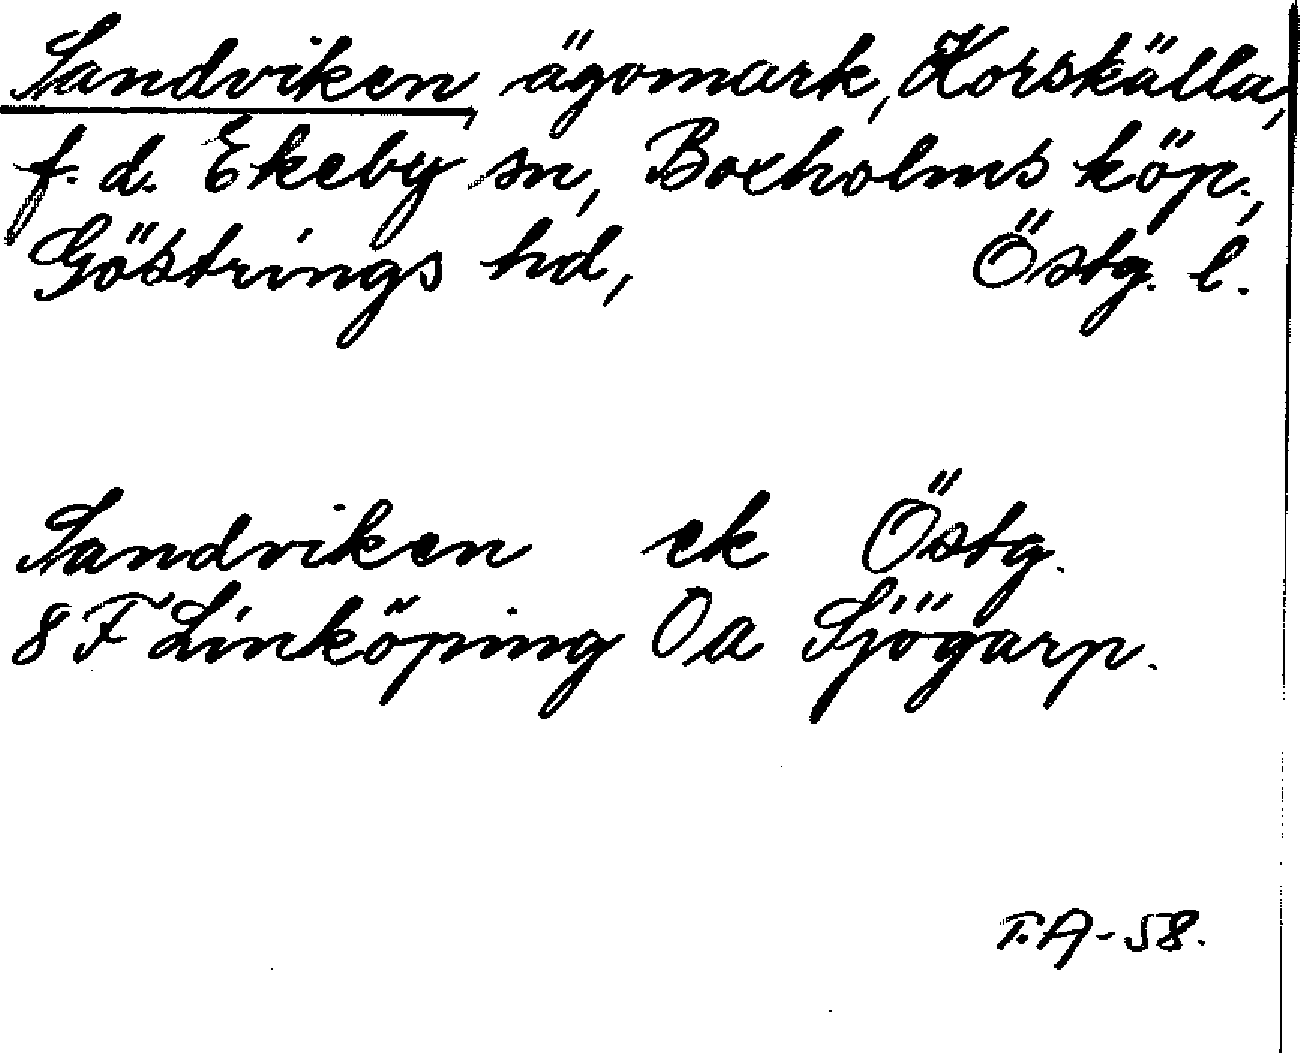 Sandviken, ägomark, Korskälla,
f.d. Ekeby sn, Boxholms köp.,
Göstrings hd, Östg. l.
Sandviken ek Östg.
8 F Linköping 0 a Sjögarp.
T.A-58.